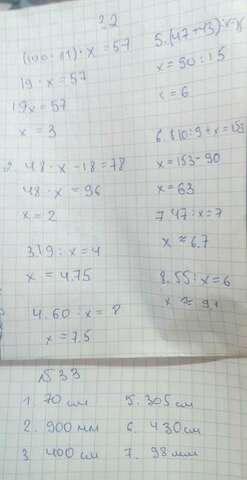 (100 - 81) · x = 57
19 · x = 57
19x = 57
x = 3
2. 48 · x - 18 = 78
48 · x = 96
x = 2
3. 19 : x = 4
x = 4.75
4. 60 : x = 8
x = 7.5
x = 90 : 15
x = 6
x = 153 - 90
x = 63
7. 47 : x = 7
x ≈ 6.7
8. 55 : x = 6
№ 33
1. 70 см
2. 900 мм
3. 400 см
5. 305 см
6. 430 см
7. 98 мм